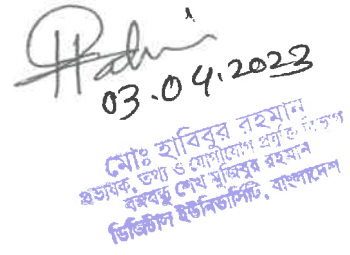 03.04.2023
মোঃ হাবিবুর রহমান
প্রভাষক, তথ্য ও যোগাযোগ প্রযুক্তি বিভাগ
বঙ্গবন্ধু শেখ মুজিবুর রহমান
ডিজিটাল ইউনিভার্সিটি, বাংলাদেশ